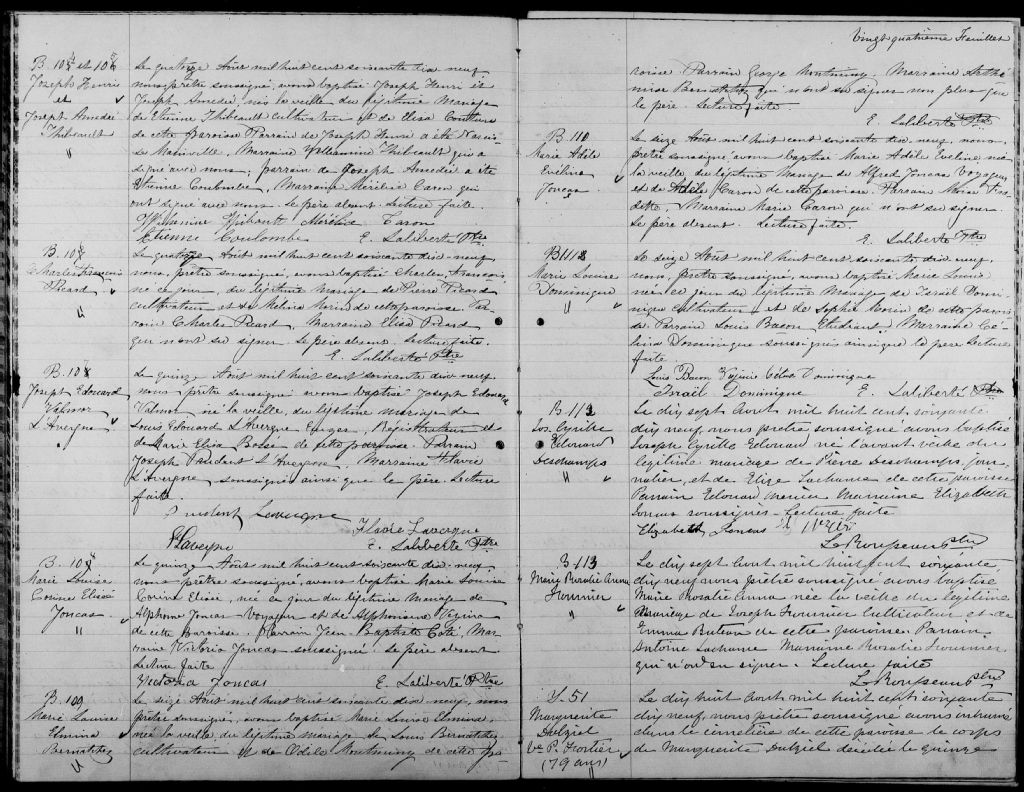 B. 10 et 10
Joseph Henri
et
Joseph Amedé
Thibeault
"
Le quatorze Août mil huit cent soixante dix neuf,
nous prêtre soussigné, avons baptisé Joseph Henri et
Joseph Amedié, nés la veille du légitime Mariage
de Etienne Thibeault Cultivateur et de Elisa Couture
de cette paroisse. Parrain de Joseph Henri a été
Mainville, Marraine Thibeault qui a
signé avec nous; parrain de Joseph Amedié a été
Etienne Coulombe, Marraine Mérilise Caron qui
ont signé avec nous. Le père absent. Lecture faite.
Caron
Etienne Coulombe E. Laliberté Ptre
B. 10
Charles François
Picard
"
Le quatorze Août mil huit cent soixante dix neuf,
nous, prêtre soussigné, avons baptisé Charles, François
né ce jour, du légitime mariage de Pierre Picard
cultivateur et de Morin de cette paroisse. Par-
rain Charles Picard, Marraine Elisa Picard
qui n'ont su signer. Le père absent. Lecture faite.
E. Laliberté Ptre
B. 10
Joseph Edouard
Valmor
L'Avergne
"
Le quinze Août mil huit cent soixante dix neuf
nous prêtre soussigné avons baptisé Joseph Edouard
Valmor né la veille, du légitime mariage de
Louis Edouard L'Avergne Ecuyer, Registrateur et
de Marie Elisa Bossé de cette paroisse. Parrain
Joseph Prudent L'Avergne, Marraine Flavie
L'Avergne Soussignés ainsi que le père. Lecture
faite.
Prudent Lavergne
Flavie Lavergne
Lavergne E. Laliberté Ptre
B. 10
Marie Louise
Corine Elisée
Joncas
"
Le quinze Août mil huit cent soixante dix neuf,
nous prêtre soussigné, avons baptisé Marie Louise
Corine Elisée, née ce jour du légitime Mariage de
Alphonse Joncas Voyageur et de Alphonsine
de cette Paroisse. Parrain Jean Baptiste Coté, Mar-
raine Victoria Joncas soussignée. Le père absent
Lecture faite
Victoria Joncas E. Laliberté Ptre
B. 109
Marie Louise
Elmira
Bernatchez
"
Le seize Août mil huit cent soixante dix neuf, nous
prêtre soussigné, avons baptisé Marie Louise Elmira,
née la veille, du légitime mariage de Louis Bernatchez
cultivateur et de Odile Montminy de cette pa-
Vingt quatrième Feuillet
roisse Parrain George Montminy. Marraine Arthé-
mise Bernatchez qui n'ont su signer non plus que
le père. Lecture faite.
E. Laliberté Ptre
B. 110
Marie Adèle
Eveline
Joncas
"
Le seize Août mil huit cent soixante dix neuf, nous
prêtre soussigné, avons baptisé Marie Adèle Eveline née
la veille du légitime mariage de Alfred Joncas Voyageur
et de Adèle Caron de cette paroisse. Parrain Moïse
Marraine Marie Caron qui n'ont su signer.
Le père absent. Lecture faite.
E. Laliberté Ptre
Marie Louise
Dominique
"
Le seize Août mil huit cent soixante dix neuf,
nous, prêtre soussigné, avons baptisé Marie Louise
née ce jour du légitime Mariage de Israël Domi-
nique Cultivateur et de Sophie Morin de cette parois-
se. Parrain Louis Bacon Etudiant, Marraine Cé-
lina Dominique soussignés ainsi que le père Lecture
faite
Louis Bacon Célina Dominique
Israël Dominique E. Laliberté Ptre
B 113
Jos. Cyrille
Edouard
Deschamps
"
Le dix sept Aout mil huit cent soixante
dix neuf, nous prêtre soussigné avons baptisé
Joseph Cyrille Edouard né l'avant veille du
légitime mariage de Pierre Deschamps, jour-
nalier, et de Elize Lachance de cette paroisse
Parrain Edouard Mercier Marraine Elizabeth
Joncas soussignés. Lecture faite
Elizabeth Joncas
L. Rousseau ptre
B 113
Marie Rosalie Anna
Fournier
"
Le dix sept Aout mil huit cent soixante
dix neuf nous prêtre soussigné avons baptisé
Marie Rosalie Anna née la veille du légitime
mariage de Joseph Fournier Cultivateur et de
Emma Buteau de cette paroisse Parrain
Antoine Lachance Marraine Rosalie Fournier
qui n'ont su signer. Lecture faite
L. Rousseau ptre
S. 51
Marguerite
Dalziel
Ve P. Fortier
(79 ans)
Le dix huit Aout mil huit cent soixante
dix neuf, nous prêtre soussigné avons inhumé
dans le cimetière de cette paroisse le corps
de Marguerite Dalziel décédée le quinze